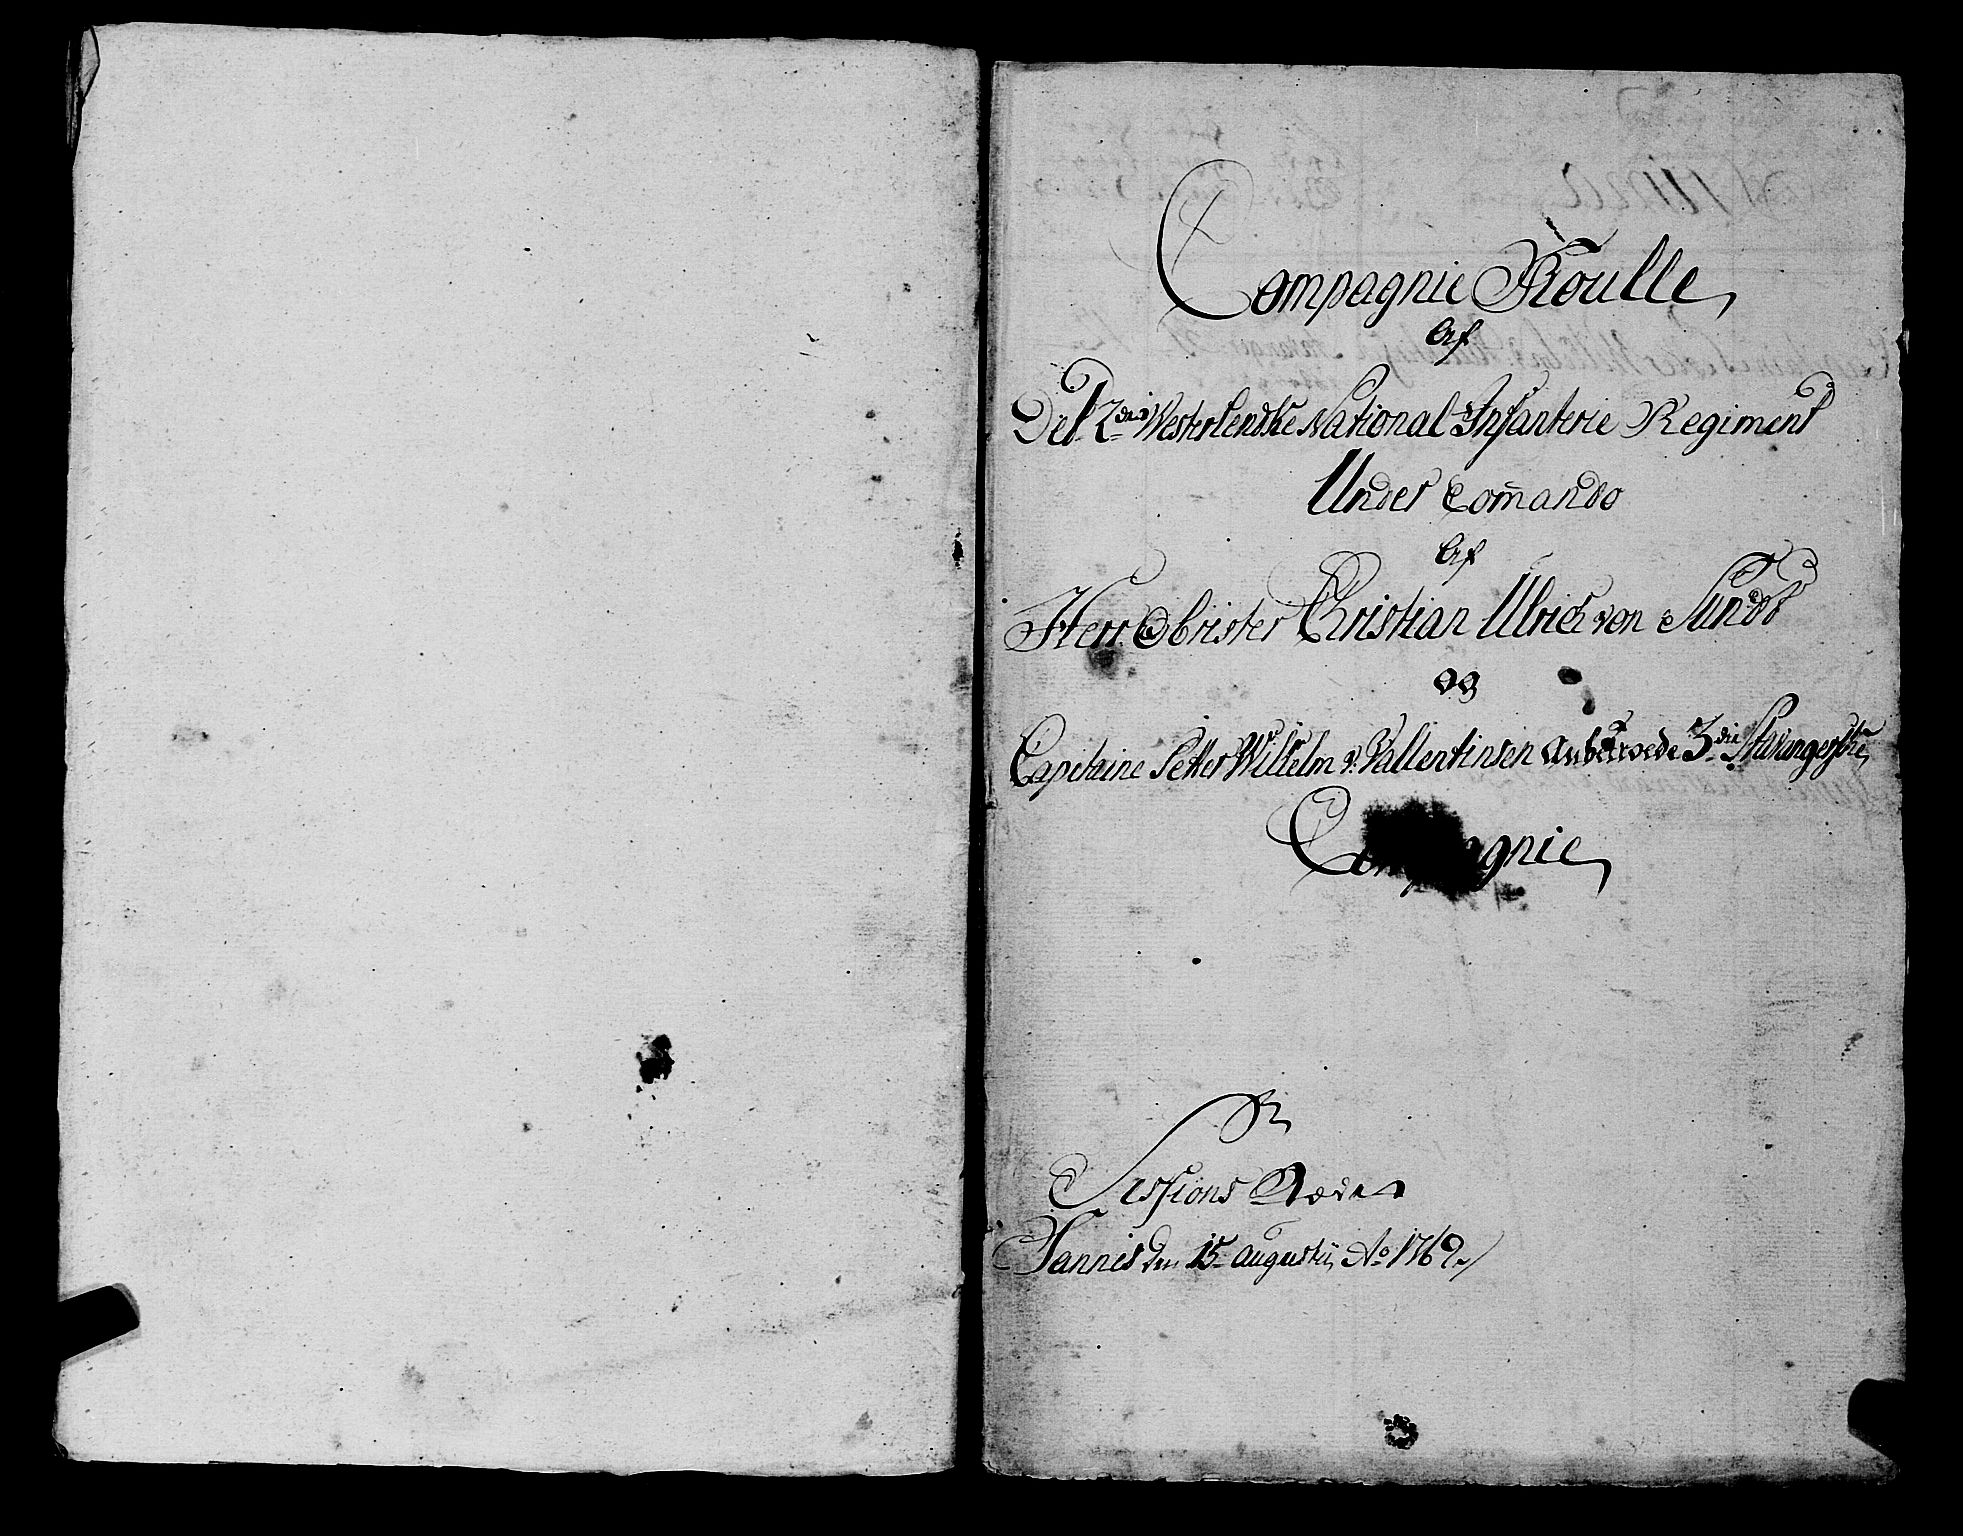 Compagnie Roulle
Af
Det 2den Westerlendske National Infanterie Regiment
Under Comando
Af
Herr Obrister Christian Ulrich von Sundt
og
Capitaine Petter Willelm v. Vallentinsen anbetroede 3die Stavangerske
Compagnie
Sessions Rode
Jannis den 15 Augustii Ao 1769